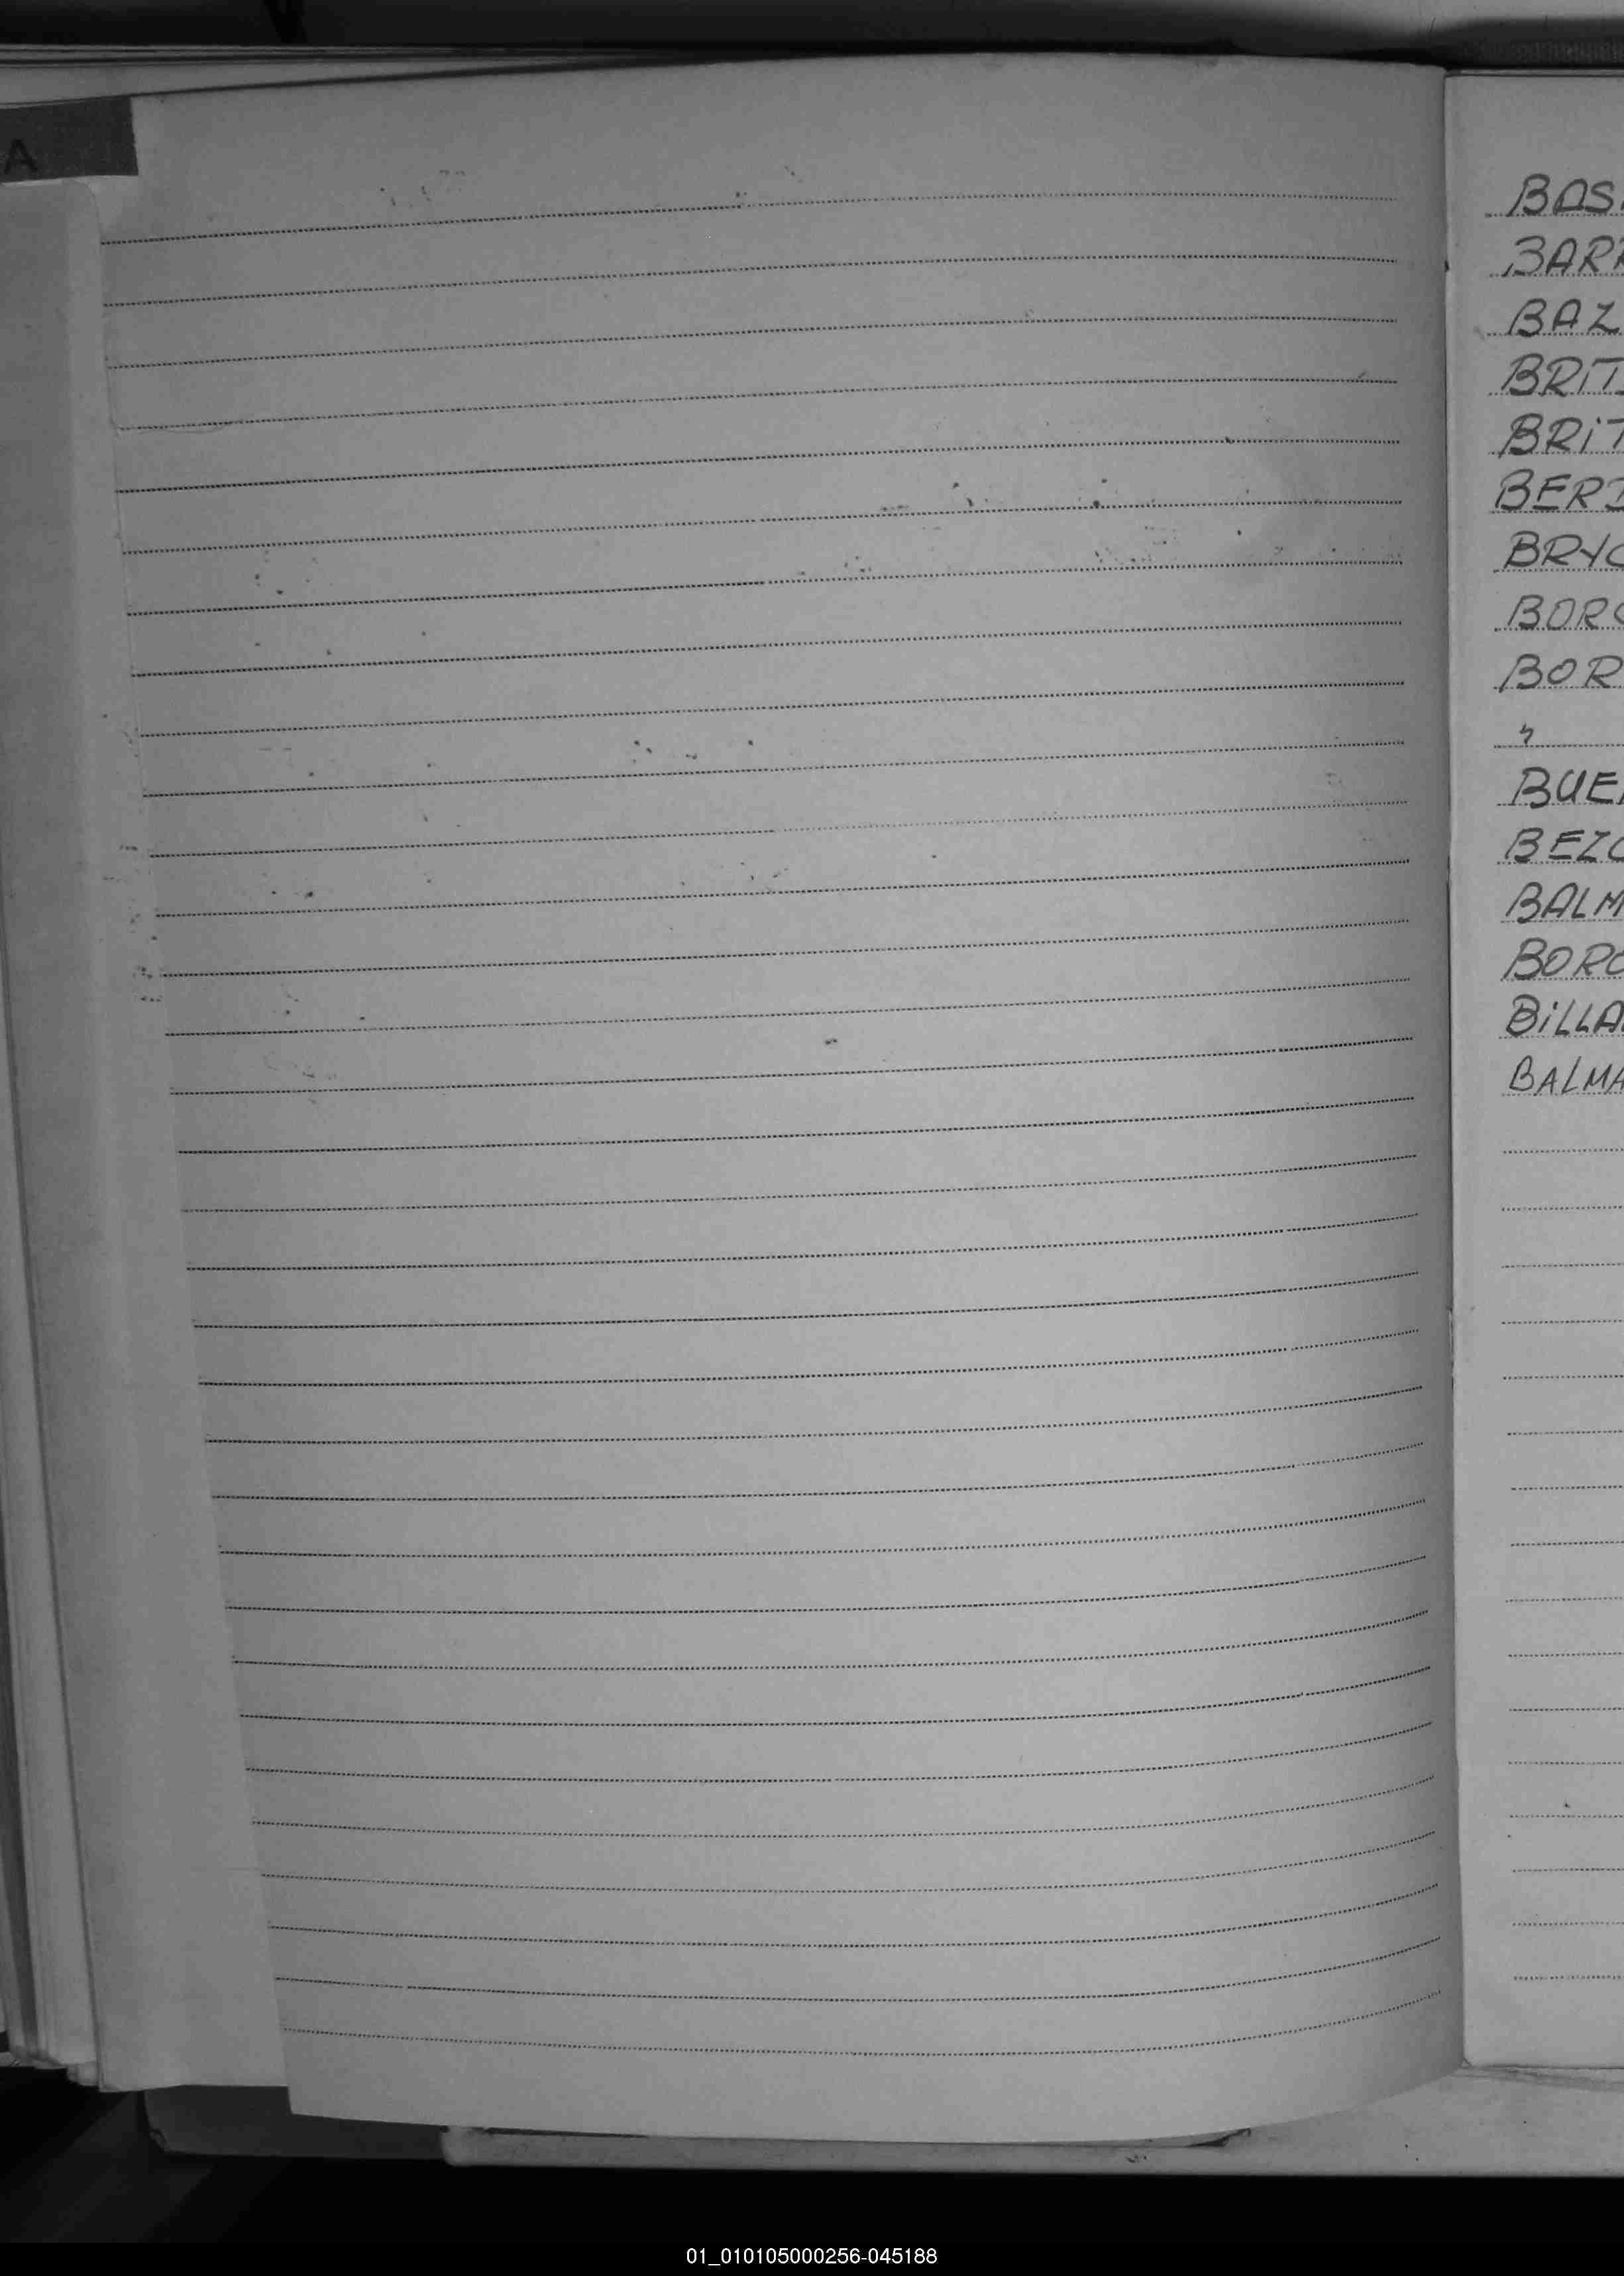 A
BAS
BARR
BAZ
BRIT
BRIT
BER
BRY
BOR
BOR
"
BUE
BEZ
BALM
BOR
BILLA
BALMA
01_010105000256-045188